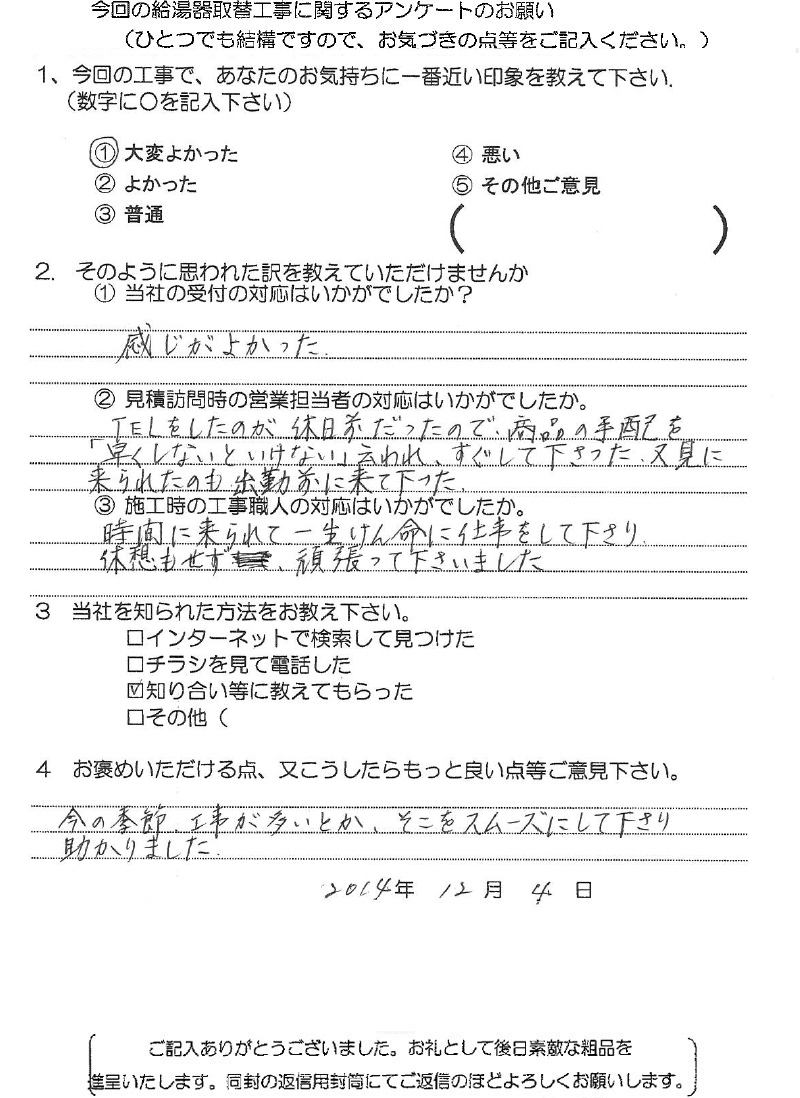 今回の給湯器取替工事に関するアンケートのお願い
（ひとつでも結構ですので、お気づきの点等をご記入ください。）
1、今回の工事で、あなたのお気持ちに一番近い印象を教えて下さい.
（数字に○を記入下さい）
① 大変よかった ④ 悪い
② よかった ⑤ その他ご意見
③ 普通 （ ）
2. そのように思われた訳を教えていただけませんか
① 当社の受付の対応はいかがでしたか？
感じがよかった.
② 見積訪問時の営業担当者の対応はいかがでしたか。
TELをしたのが 休日前だったので、商品の手配を
「早くしないといけない」云われ、すぐして下さった、又見に
来られたのも 出勤前に来て下った.
③ 施工時の工事職人の対応はいかがでしたか。
時間に来られて 一生けん命に仕事をして下さり.
休憩もせず 、頑張って下さいました
3 当社を知られた方法をお教え下さい。
□インターネットで検索して見つけた
□チラシを見て電話した
☑知り合い等に教えてもらった
□その他（
4 お褒めいただける点、又こうしたらもっと良い点等ご意見下さい。
今の季節、工事が多いとか、そこをスムーズにして下さり
助かりました.
2014年 12月 4日
ご記入ありがとうございました。お礼として後日素敵な粗品を
進呈いたします。同封の返信用封筒にてご返信のほどよろしくお願いします。